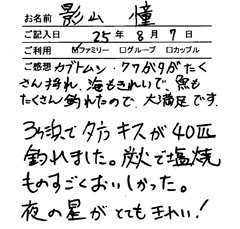 お名前 影山 憧
ご記入日 25年 8月 7日
ご利用 ☑ファミリー □グループ □カップル
ご感想 カブトムシ・クワガタがたく
さん採れ、海もきれいで、魚も
たくさん釣れたので、大満足です。
3ヶ浜で夕方キスが40匹
釣れました。炭火で塩焼
ものすごくおいしかった。
夜の星がとてもキレイ!